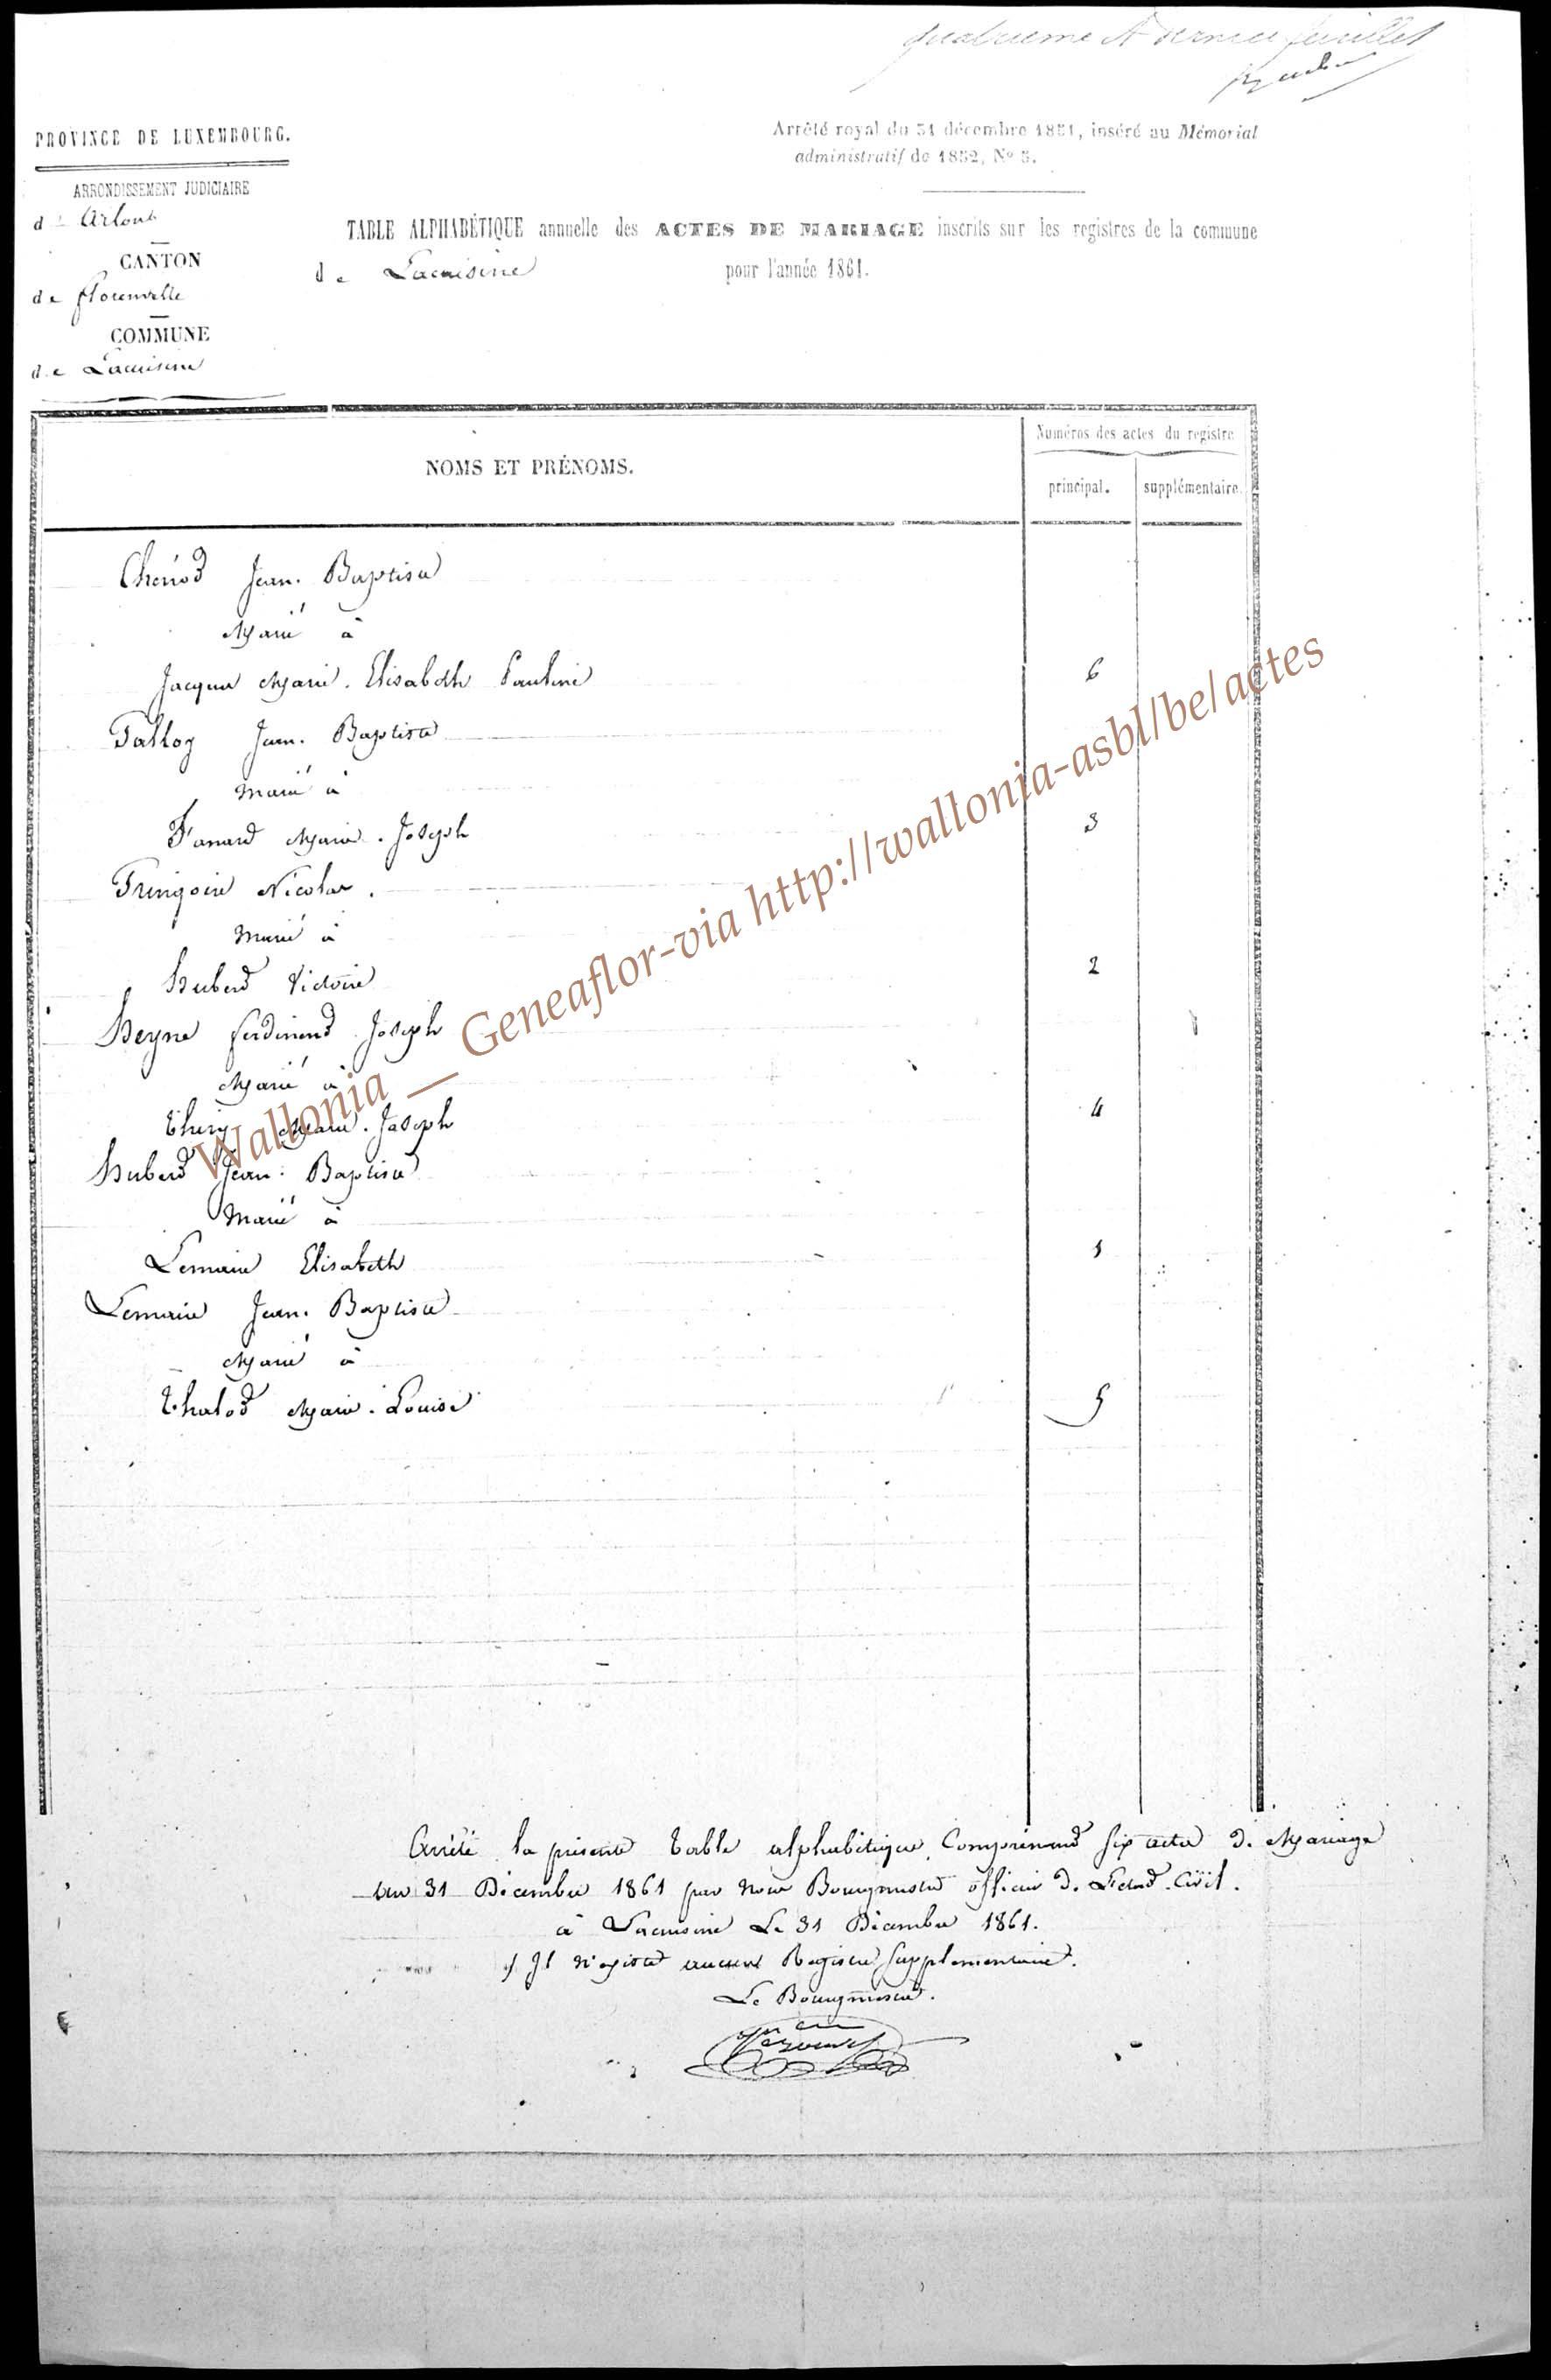 quatrième et dernier feuillet
PROVINCE DE LUXEMBOURG.
Arrêté royal du 31 décembre 1851, inséré au Mémorial
administratif de 1852, Nº 3.
ARRONDISSEMENT JUDICIAIRE
d' Arlon
TABLE ALPHABÉTIQUE annuelle des ACTES DE MARIAGE inscrits sur les registres de la commune
de Lacuisine pour l'année 1861.
CANTON
de florenville
COMMUNE
de Lacuisine
NOMS ET PRÉNOMS.
Numéros des actes du registre
principal. supplémentaire.
Chenod Jean. Baptiste
Marié à
Jacques Marie. Elisabeth Pauline 6
Falloy Jean. Baptiste
marié à
Fanard Marie. Joseph 3
Fringoire Nicolas.
marié à
Huberd Victoire 2
Heyne ferdinand Joseph
Marié à
Thiry Marie. Joseph 4
Huberd Jean. Baptiste
marié à
Lemaire Elisabeth 1
Lemaire Jean. Baptiste
Marié à
Thalod Marie. Louise 5
Wallonia _ Geneaflor-via http://wallonia-asbl/be/actes
Arrêté la présente table alphabétique, Comprenand six actes de Mariage
31 Décembre 1861 par nous Bourgmestre officier de L'etad. Civil.
à Lacuisine Le 31 Décembre 1861.
Il n'existe aucun Registre supplementaire.
Le Bourgmestre.